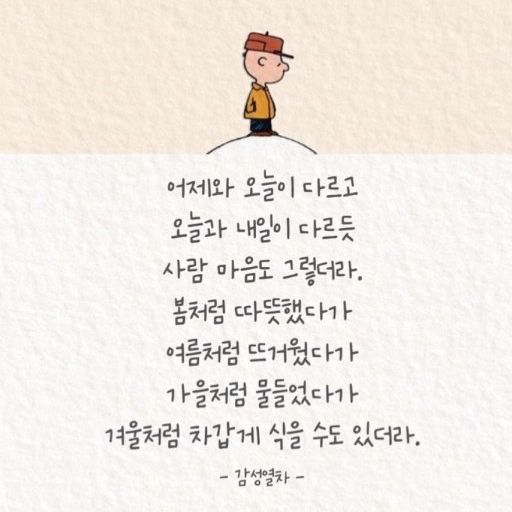 어제와 오늘이 다르고
오늘과 내일이 다르듯
사람 마음도 그렇더라.
봄처럼 따뜻했다가
여름처럼 뜨거웠다가
가을처럼 물들었다가
겨울처럼 차갑게 식을 수도 있더라.
- 감성열차 -